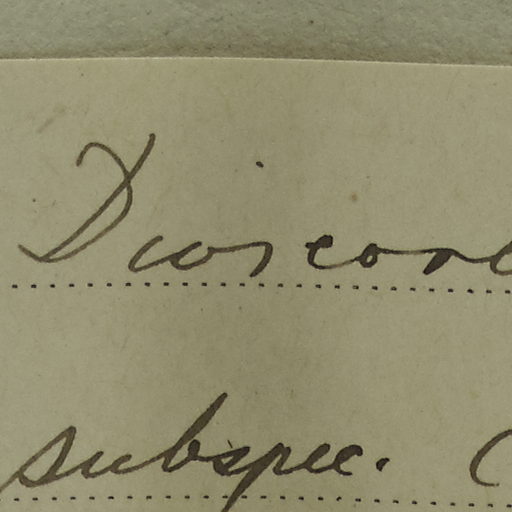 Dioscore
subspec. C